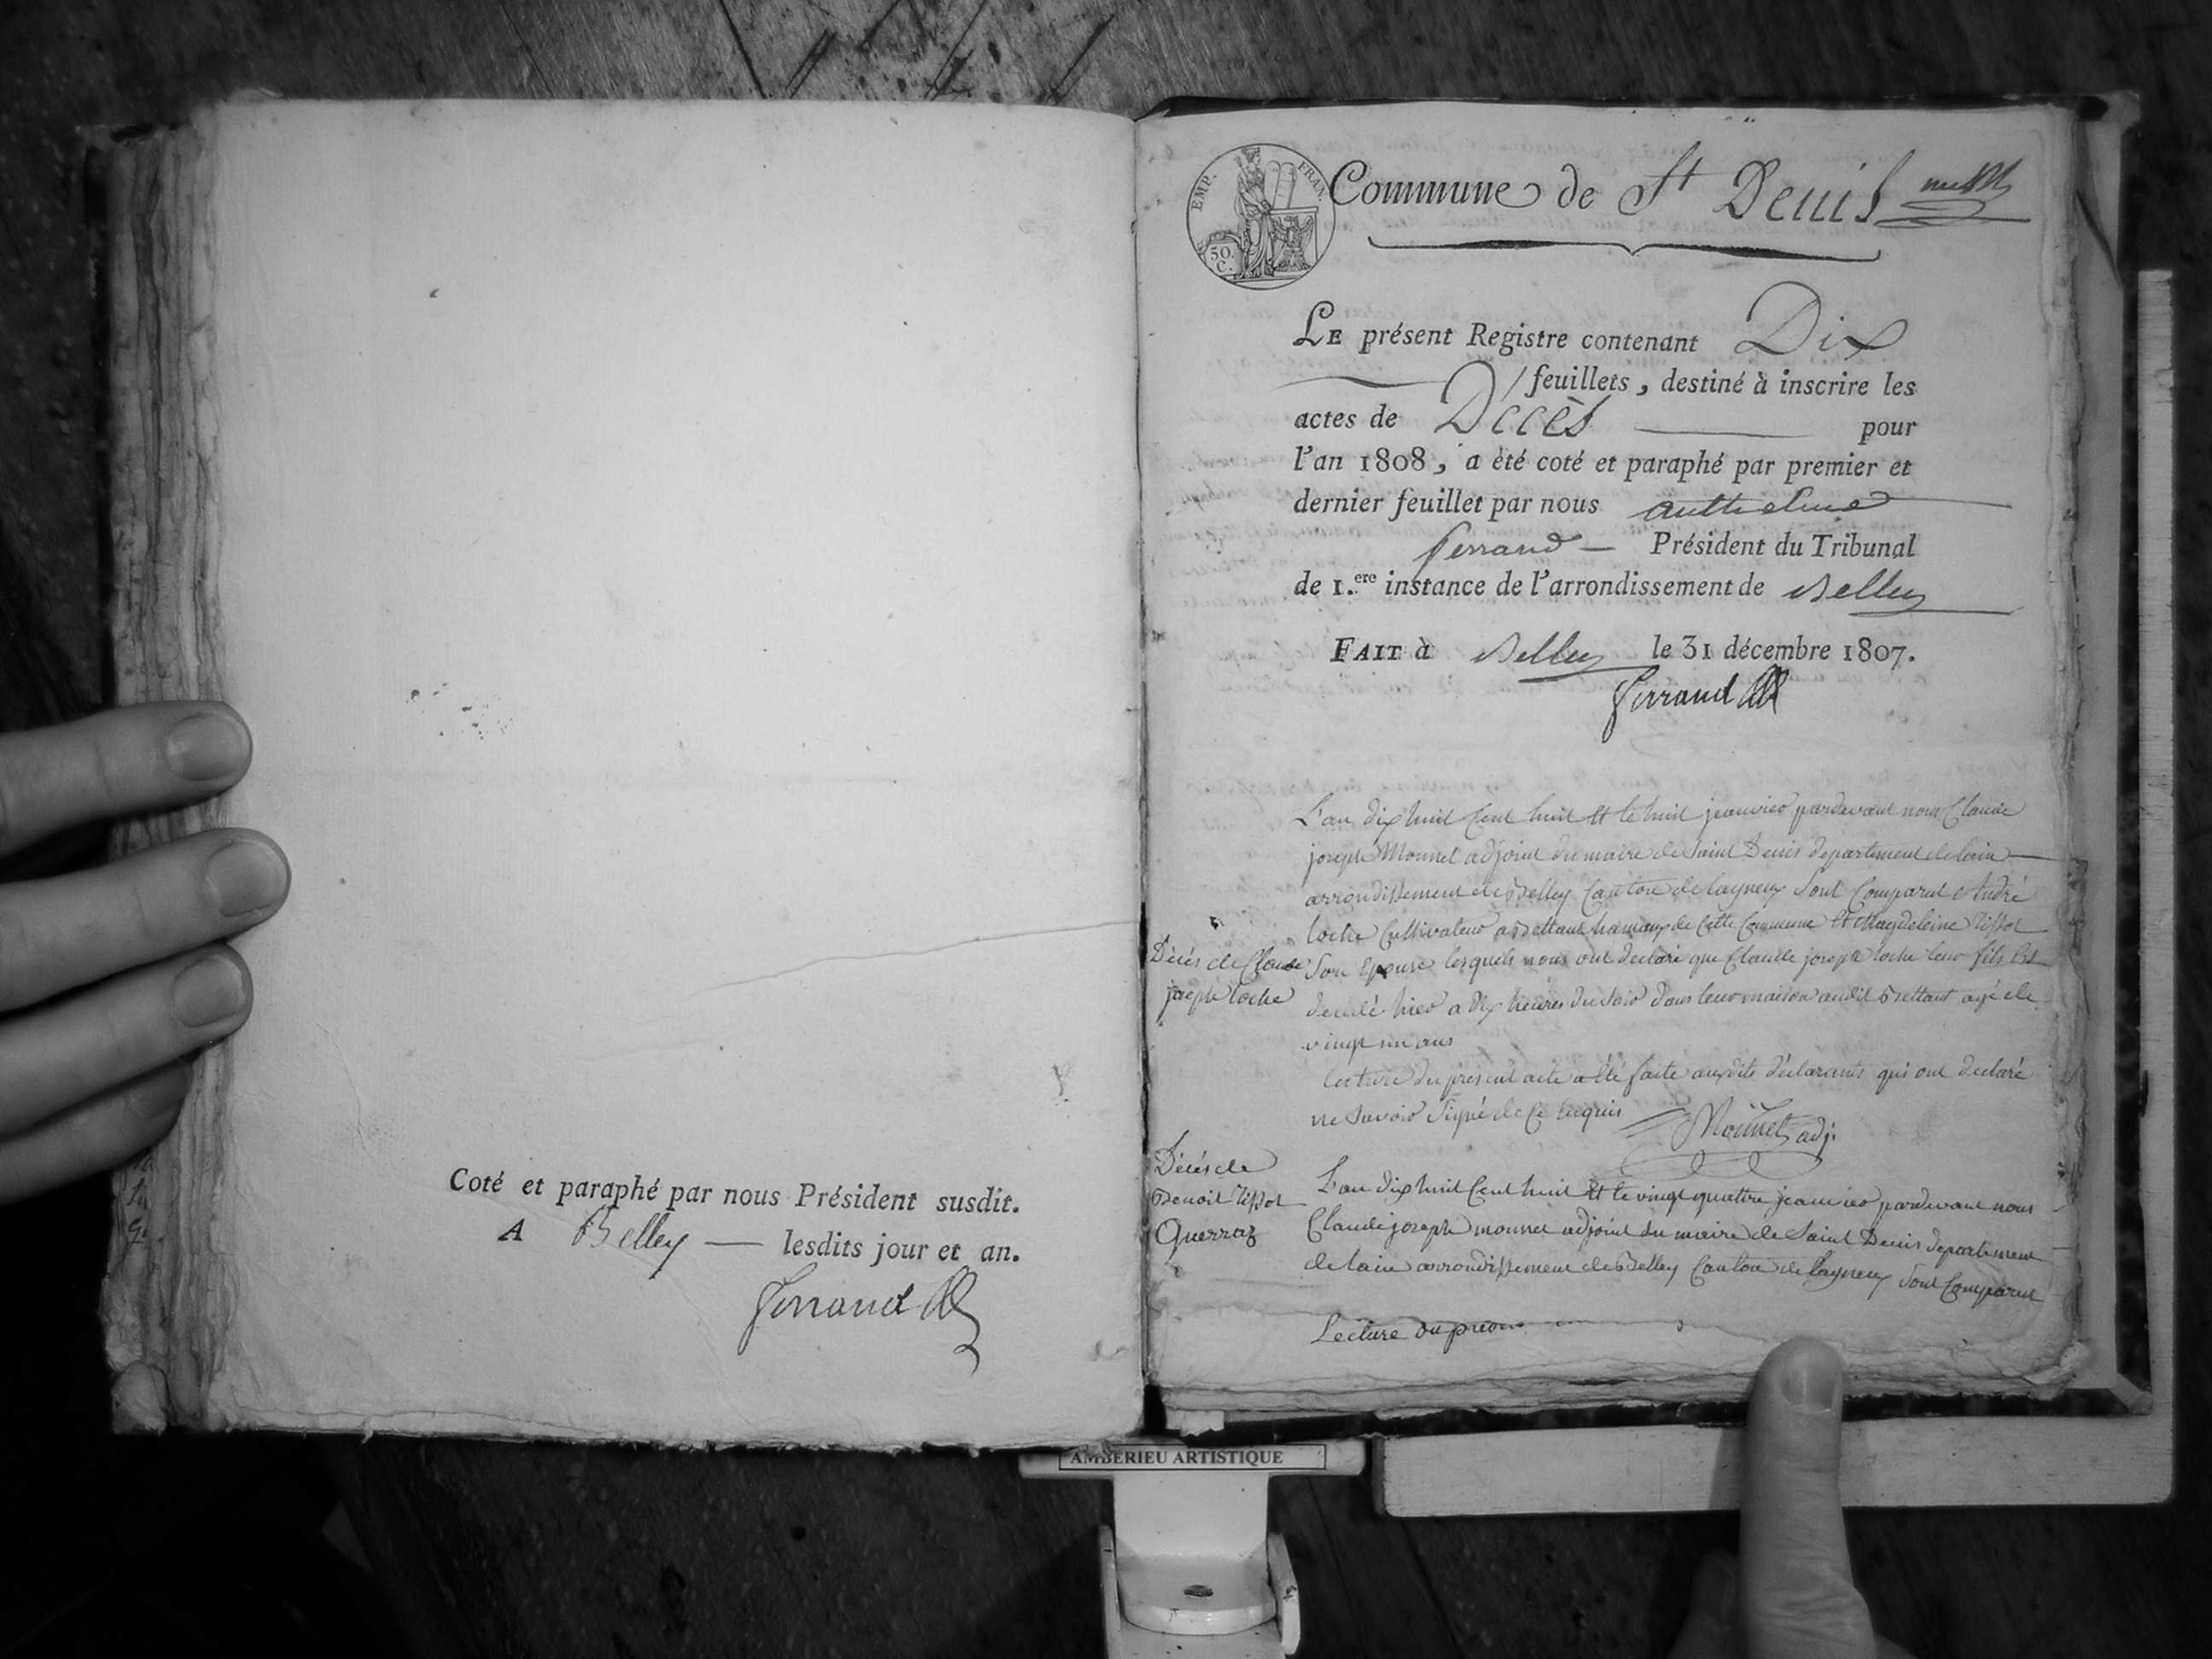 Coté et paraphé par nous Président susdit.
A Belley — lesdits jour et an.
Ferrand
EMP. FRAN.
50. C.
Commune de St Denis
LE présent Registre contenant Dix
feuillets, destiné à inscrire les
actes de Décès pour
l'an 1808, a été coté et paraphé par premier et
dernier feuillet par nous anthelme
ferrand — Président du Tribunal
de 1.ere instance de l'arrondissement de Belley
FAIT à Belley le 31 décembre 1807.
Ferrand
Décès de Claude
joseph loche
L'an dix huit Cent huit Et le huit jeanvier pardevant nous Claude
joseph Monnet adjoint du maire de Saint Denis departement de lain
arrondissement de Belley Canton de lagneux Sont Comparut André
loche Cultivateur a Bettant hamaux de Cette Commune Et Magdeleine Tissot
Son Epouse lesquels nous ont declaré que Claude joseph loche leur fils Est
decedé hier a dix heures du soir dans leur maison audit Bettant agé de
vingt un ans
lecture du present acte a été faite auxdits déclarants qui ont declaré
ne Savoir Signé de Ce Enquis
Monnet adj.
Décès de
Benoit Tissot
Querraz
L'an dix huit Cent huit Et le vingt quattre jeanvier pardevant nous
Claude joseph monnet adjoint du maire de Saint Denis departement
de lain arrondissement de Belley Canton de Lagneux Sont Comparut
Lecture du
AMBERIEU ARTISTIQUE